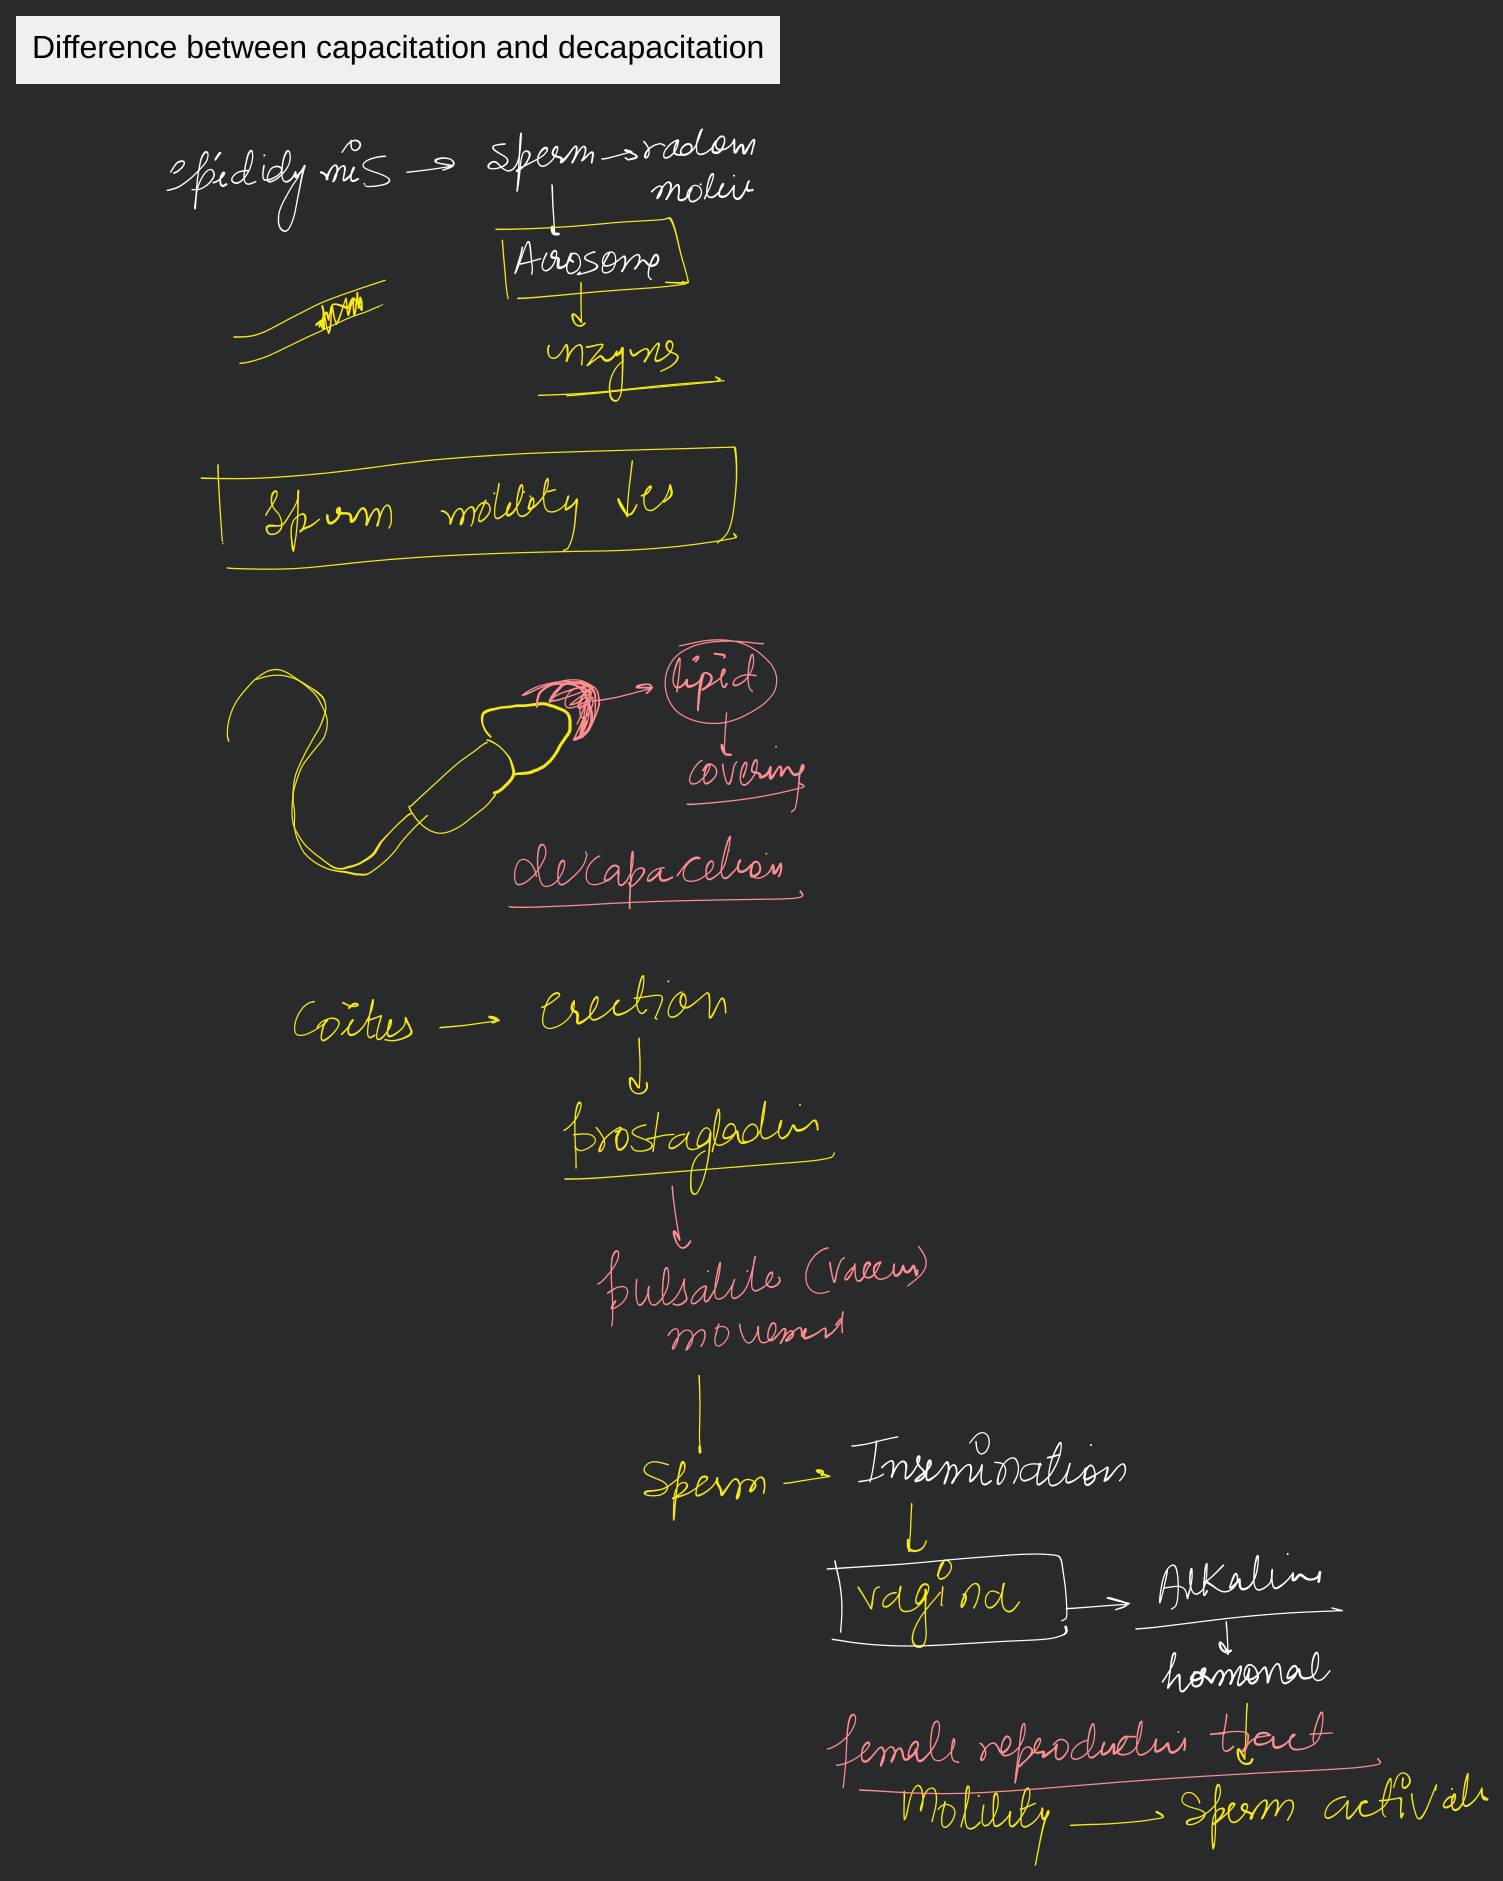 Difference between capacitation and decapacitation
epididymis → sperm → radom
motiv
Acrosome
enzyms
Sperm motility ↓es
lipid
covering
decapacetion
Coitus → erection
prostagladin
pulsatile (vaccum)
movement
Sperm → Insemination
vagina → Alkaline
hormonal
female reproductive tract
Motility → Sperm activate